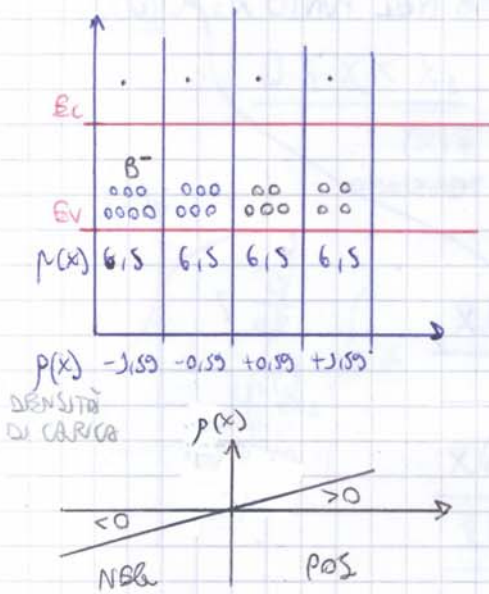 Ec
B⁻
Ev
p(x) 6,5 6,5 6,5 6,5
ρ(x) -1,5q -0,5q +0,5q +1,5q
DENSITÀ
DI CARICA
ρ(x)
<0 >0
NEG POS